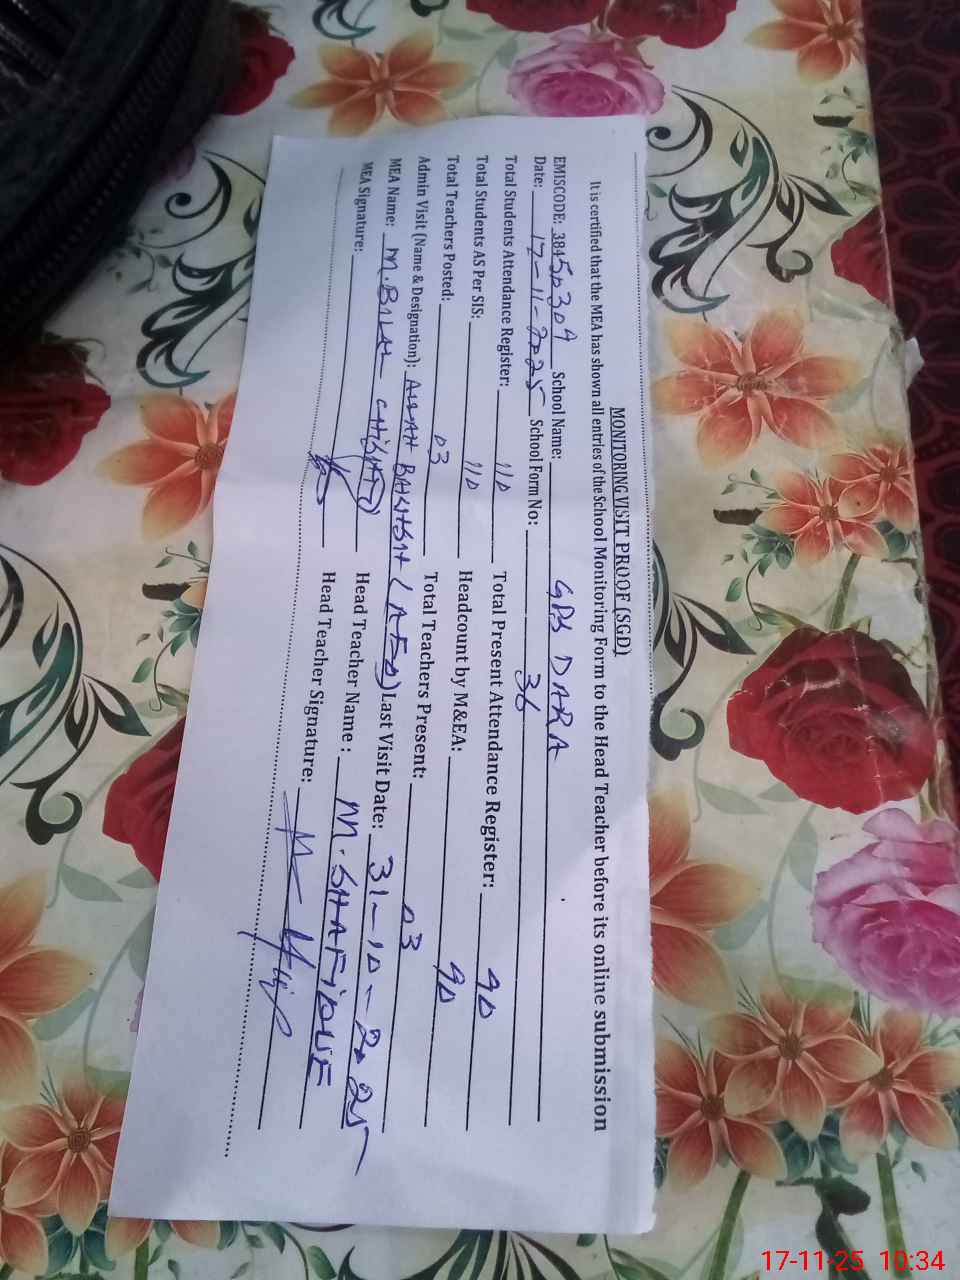 MONITORING VISIT PROOF (SGD)
It is certified that the MEA has shown all entries of the School Monitoring Form to the Head Teacher before its online submission
EMISCODE: 38450304 School Name: GPS DARA
Date: 17-11-2025 School Form No: 36
Total Students Attendance Register: 110 Total Present Attendance Register: 90
Total Students AS Per SIS: 110 Headcount by M&EA: 90
Total Teachers Posted: 03 Total Teachers Present: 03
Admin Visit (Name & Designation): ALLAH BAKHSH (AEO) Last Visit Date: 31-10-2025
MEA Name: M.BILAL Head Teacher Name: M.SHAFIQUE
MEA Signature: Head Teacher Signature:
17-11-25 10:34